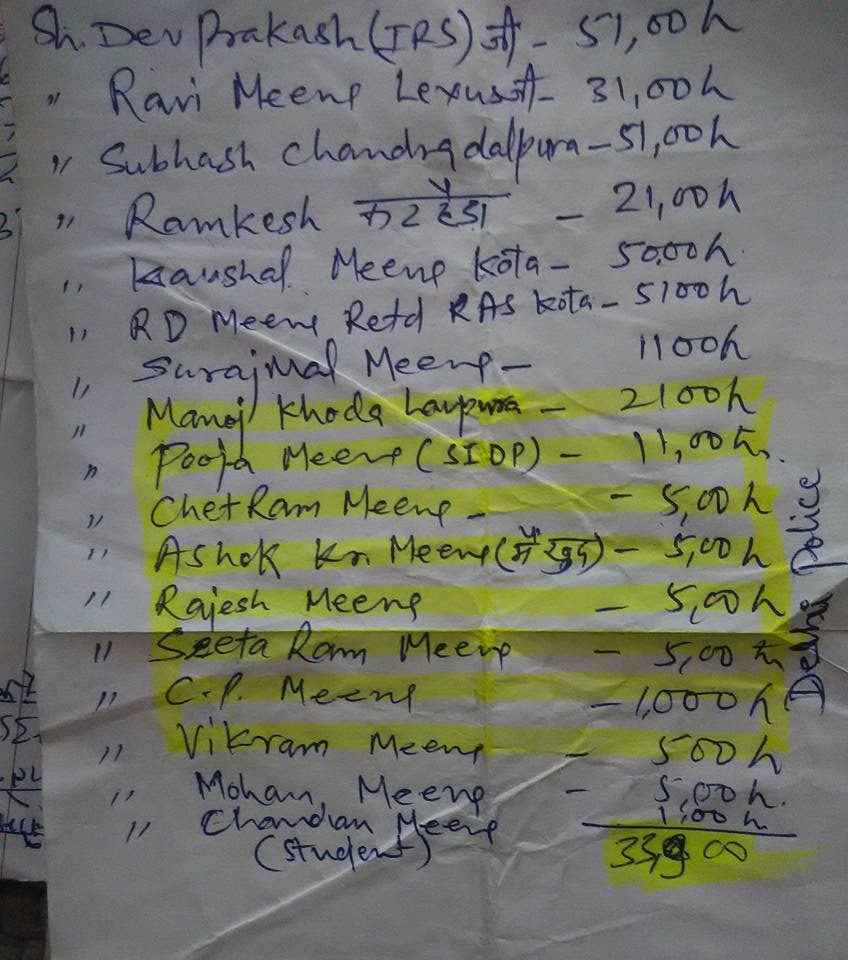 Sh. Dev Prakash (IRS) जी - 51,00/-
" Ravi Meena Lexus जी - 31,00/-
" Subhash Chandra dalpura - 51,00/-
" Ramkesh - 21,00/-
" Kaushal Meena Kota - 50,00/-
" RD Meena Retd RAS Kota - 5100/-
" Surajmal Meena - 1100/-
" Manoj Khoda - 2100/-
" Pooja Meena (SI DP) - 11,00/-
" Chet Ram Meena - - 5,00/-
" Ashok Kr. Meena (मैं खुद) - 5,00/-
" Rajesh Meena - 5,00/-
" Seeta Ram Meena - 5,00/-
" C.P. Meena - 1,000/-
" Vikram Meena - 500/-
" Mohan Meena - 5,00/-
" Chandan Meena 1,00/-
(student)
Delhi Police